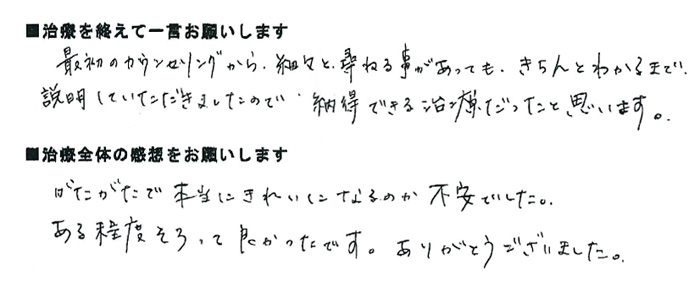 ■治療を終えて一言お願いします
最初のカウンセリングから、細々と尋ねる事があっても、きちんとわかるまで、
説明していただきましたので、納得できる治療だったと思います。
■治療全体の感想をお願いします
がたがたで本当にきれいになるのか不安でした。
ある程度そろって良かったです。ありがとうございました。